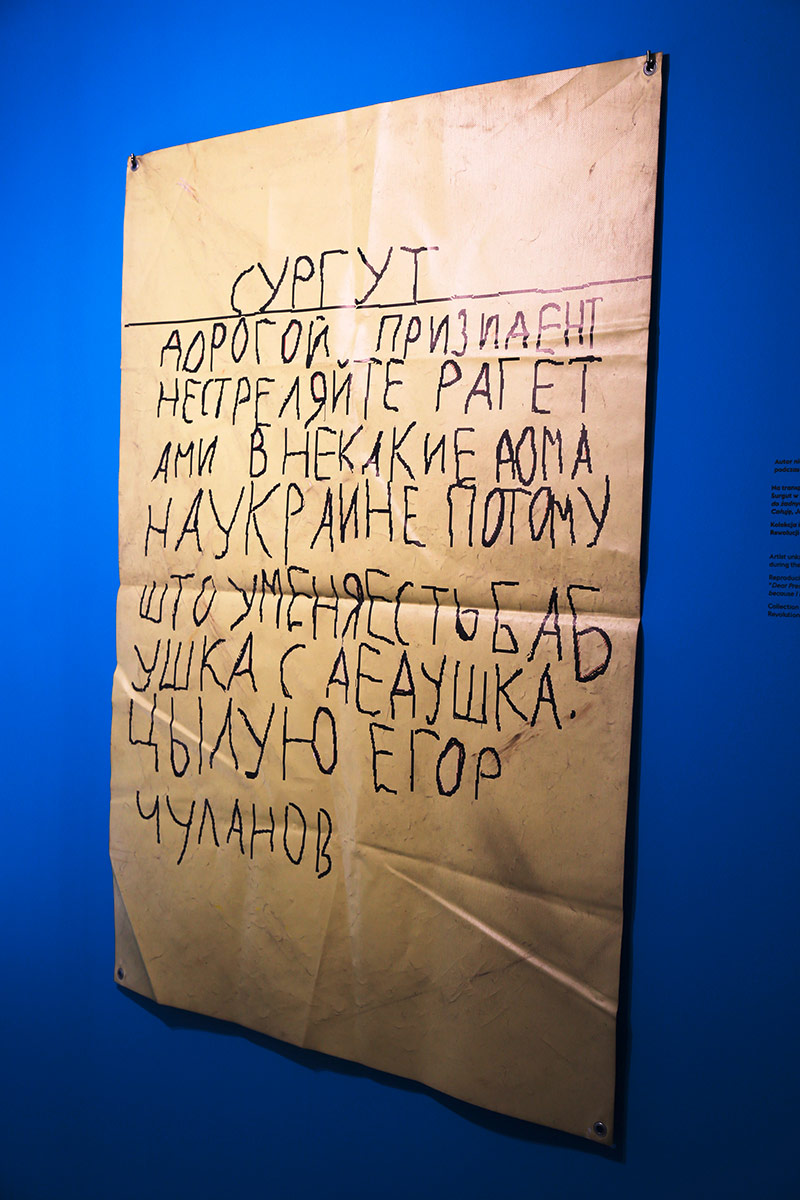 СУРГУТ
ДОРОГОЙ ПРИЗИДЕНТ
НЕСТРЕЛЯЙТЕ РАГЕТ
АМИ В НЕКАКИЕ ДОМА
НАУКРАИНЕ ПОТОМУ
ШТО УМЕНЯЕСТЬ БАБ
УШКА С ДЕДУШКА.
ЦЫЛУЮ ЕГОР
ЧУЛАНОВ
Autor ni
podczas
Na transp
Surgut w
do żadny
Całuję, J
Kolekcja
Rewolucji
Artist unk
during the
Reproduc
"Dear Pre
because I
Collection
Revolution